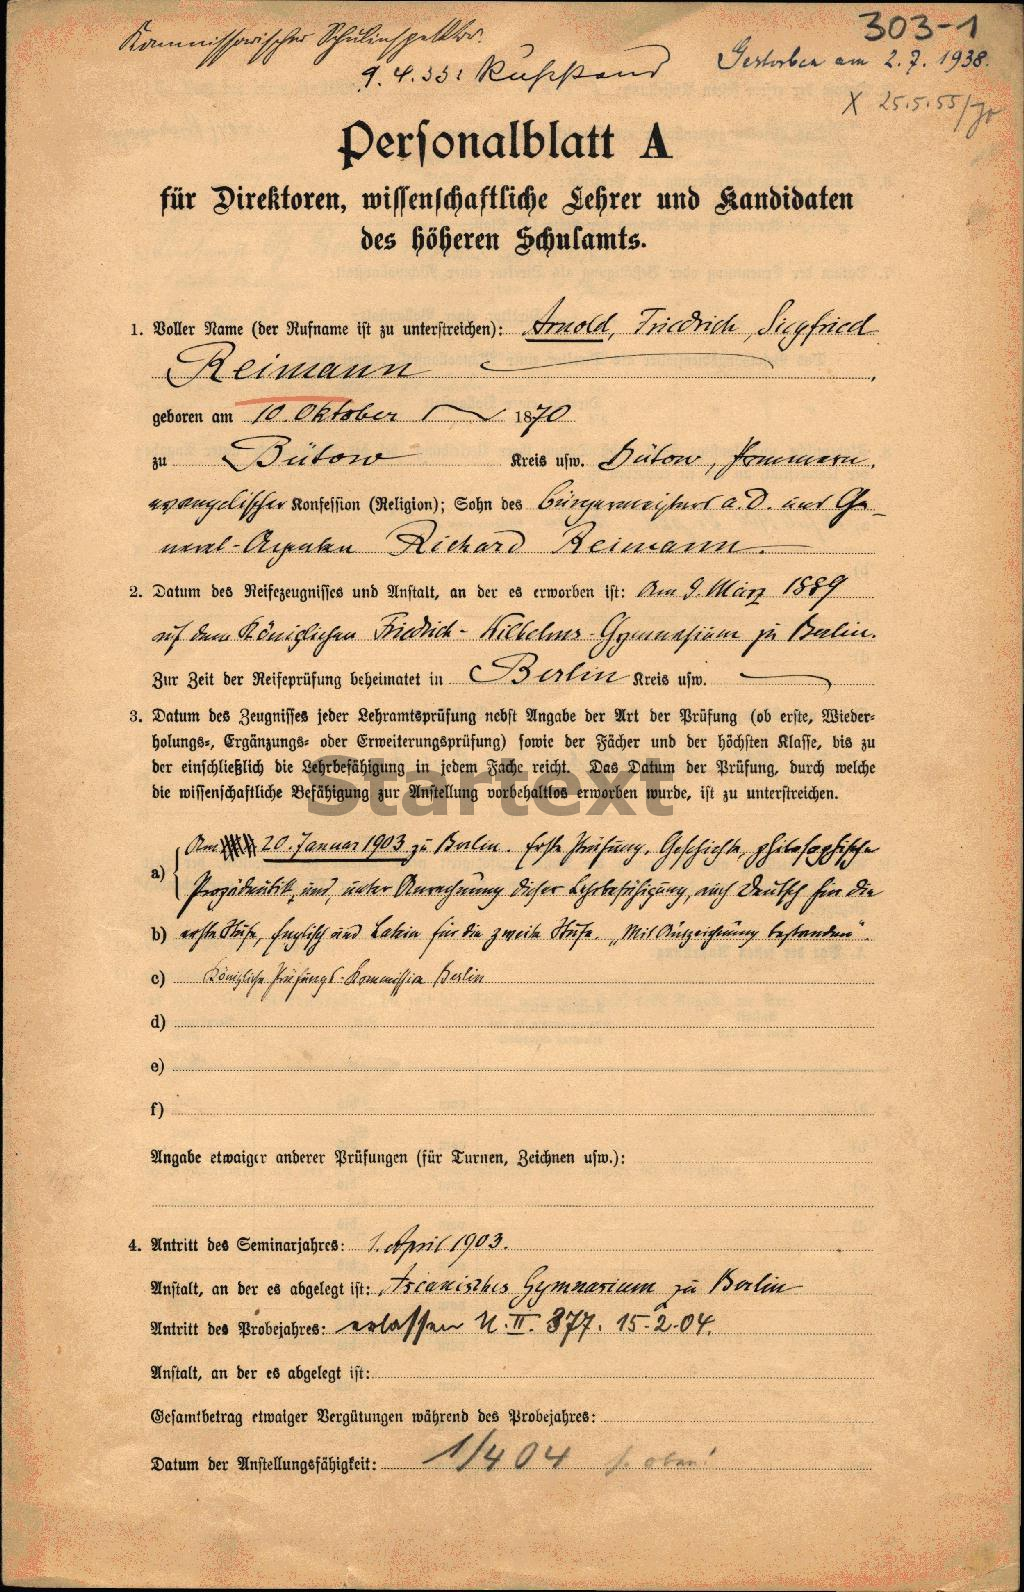 Kommissarischer Schulinspektor.
303-1
9.4.33: Ruhestand
Gestorben am 2.7.1938.
X 25.5.55/
Personalblatt A
für Direktoren, wissenschaftliche Lehrer und Kandidaten
des höheren Schulamts.
1. Voller Name (der Rufname ist zu unterstreichen): Arnold, Friedrich, Siegfried
Reimann
geboren am 10. Oktober 1870
zu Bütow Kreis usw. Bütow, Pommern.
evangelischer Konfession (Religion); Sohn des Bürgermeisters a.D. und Ge-
neral-Agenten Richard Reimann.
2. Datum des Reifezeugnisses und Anstalt, an der es erworben ist: Am 9. März 1889
auf dem Königlichen Friedrich-Wilhelms-Gymnasium zu Berlin.
Zur Zeit der Reifeprüfung beheimatet in Berlin Kreis usw.
3. Datum des Zeugnisses jeder Lehramtsprüfung nebst Angabe der Art der Prüfung (ob erste, Wieder-
holungs-, Ergänzungs- oder Erweiterungsprüfung) sowie der Fächer und der höchsten Klasse, bis zu
der einschließlich die Lehrbefähigung in jedem Fache reicht. Das Datum der Prüfung, durch welche
die wissenschaftliche Befähigung zur Anstellung vorbehaltlos erworben wurde, ist zu unterstreichen.
Startext
Am 20. Januar 1903 zu Berlin. Erste Prüfung. Geschichte, philosophische
a) Propädeutik und, unter Anrechnung dieser Lehrbefähigung, auch Deutsch für die
b) erste Stufe, Englisch und Latein für die zweite Stufe. „Mit Auszeichnung bestanden".
c) Königliche Prüfungs-Kommission Berlin
d)
e)
f)
Angabe etwaiger anderer Prüfungen (für Turnen, Zeichnen usw.):
4. Antritt des Seminarjahres: 1. April 1903.
Anstalt, an der es abgelegt ist: Askanisches Gymnasium zu Berlin
Antritt des Probejahres: erlassen U.II. 377. 15.2.04.
Anstalt, an der es abgelegt ist:
Gesamtbetrag etwaiger Vergütungen während des Probejahres:
Datum der Anstellungsfähigkeit: 1/4 04 s. oben!